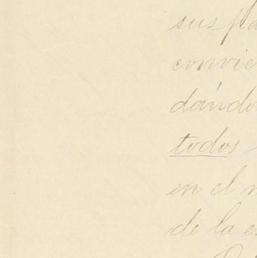 sus pa
convic
dándo
todos
en el
de la e